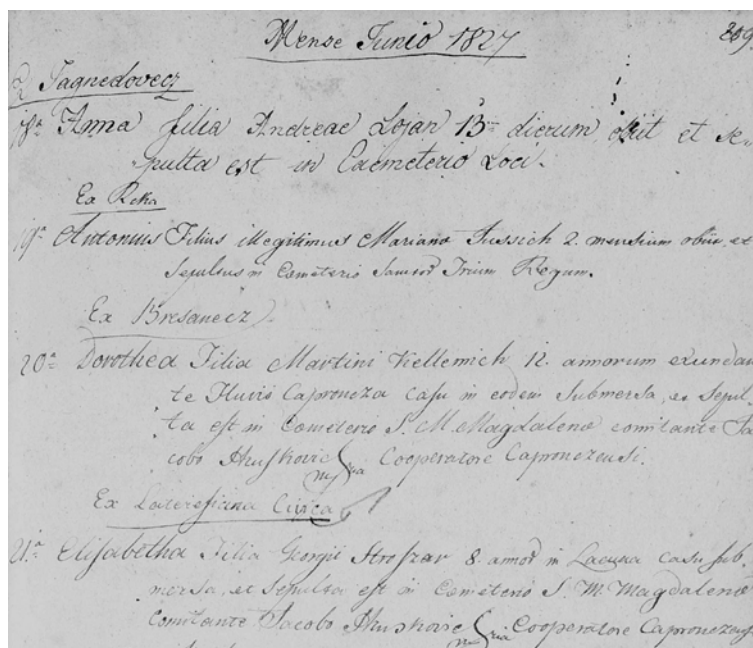 Mense Junio 1827
Ex Jagnedovecz
18ª Anna filia Andreae Lojan 13 dierum obiit et se-
pulta est in Caemeterio Loci.
Ex Reka
19ª Antonius Filius illegitimus Mariana Jussich 2. mensium obiit, et
Sepultus in Cemeterio Sanctor Trium Regum.
Ex Bresanecz
20ª Dorothea Filia Martini Kellemich 12. annorum exundan
te Fluvio Caproncza casu in eodem Submersa, et Sepul-
ta est in Cemeterio S. M. Magdalena comitante Ja
cobo Cooperatore Capronczensi.
Ex Latereficina Civica
21ª Elisabetha Filia Georgii 8. annor in Lacuna casu sub-
mersa, et Sepulta est in Cemeterio S. M. Magdalena
Comitante Jacobo Cooperatore Capronczensi